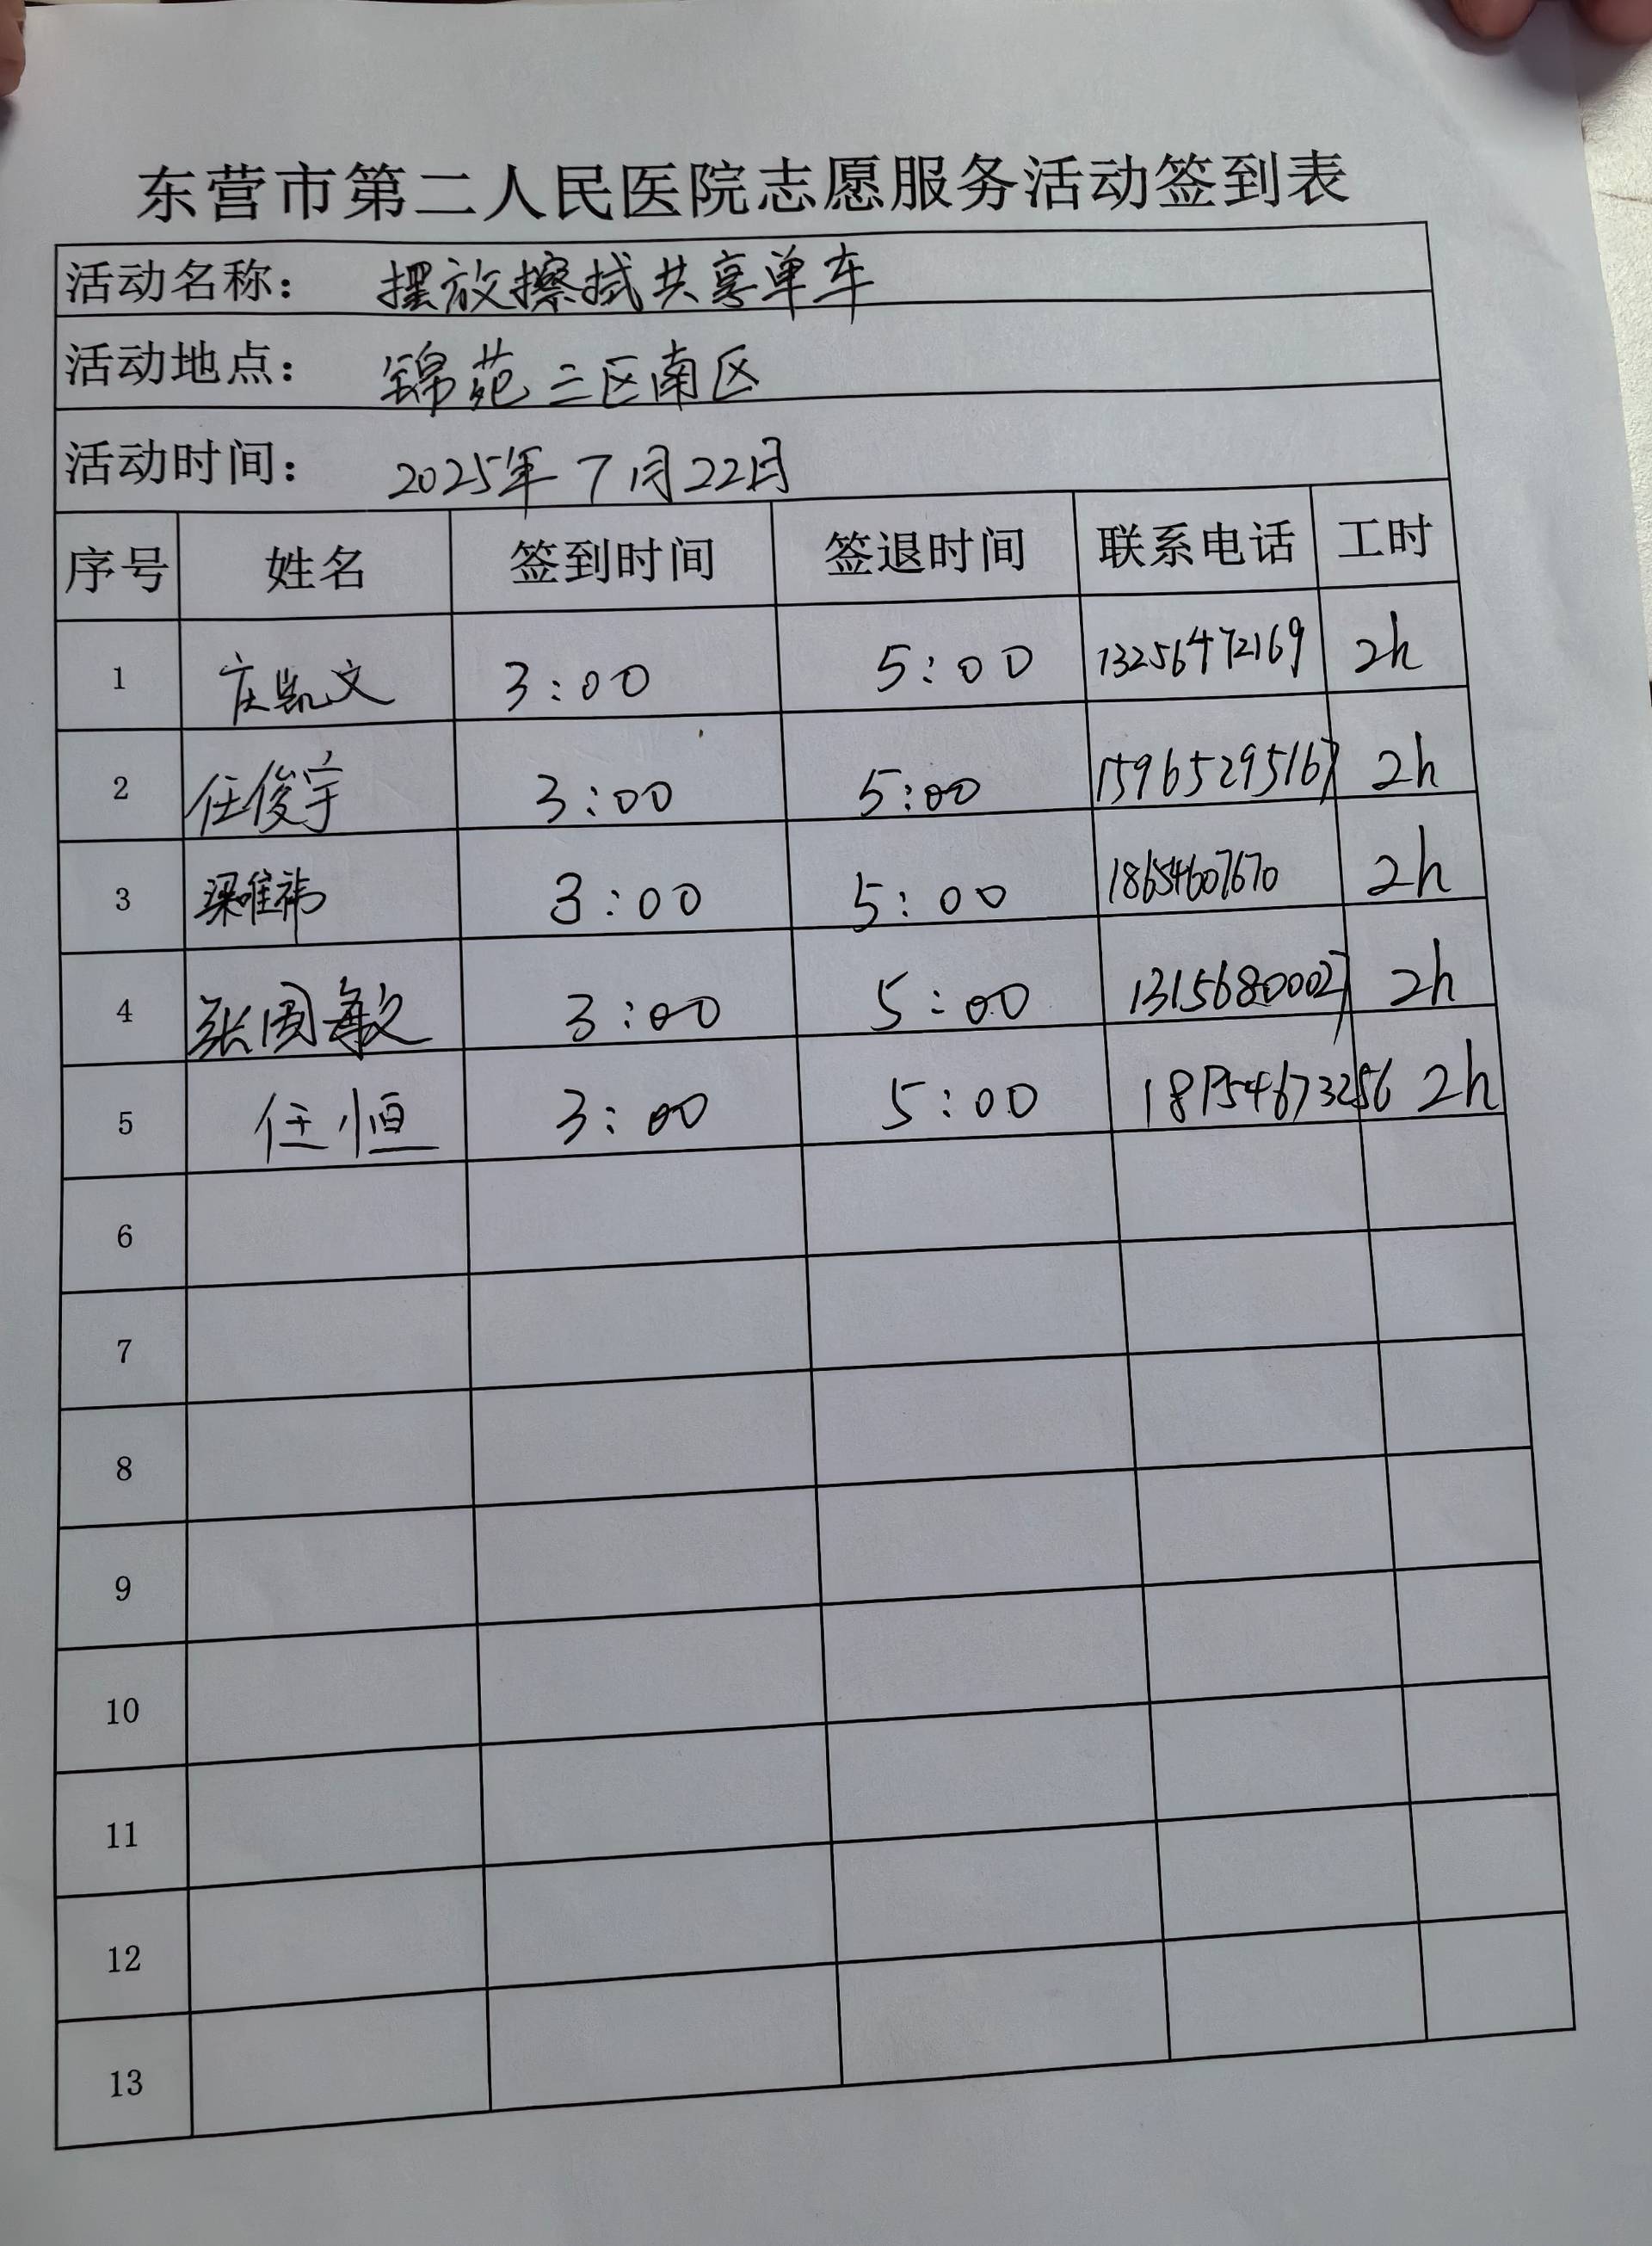 东营市第二人民医院志愿服务活动签到表
活动名称： 摆放擦拭共享单车
活动地点： 锦苑三区南区
活动时间： 2025年7月22日
序号 姓名 签到时间 签退时间 联系电话 工时
1 庄凯文 3:00 5:00 13256472169 2h
2 任俊宇 3:00 5:00 15965295167 2h
3 梁唯祎 3:00 5:00 18654607670 2h
4 张国敏 3:00 5:00 13156800027 2h
5 任恒 3:00 5:00 18754673256 2h
6
7
8
9
10
11
12
13